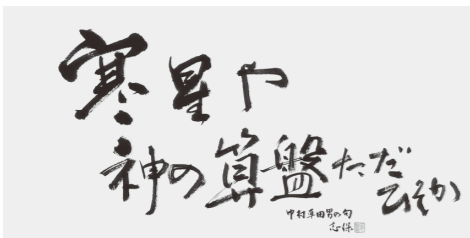 寒星や
神の算盤ただ
ひそか
中村草田男の句
志保